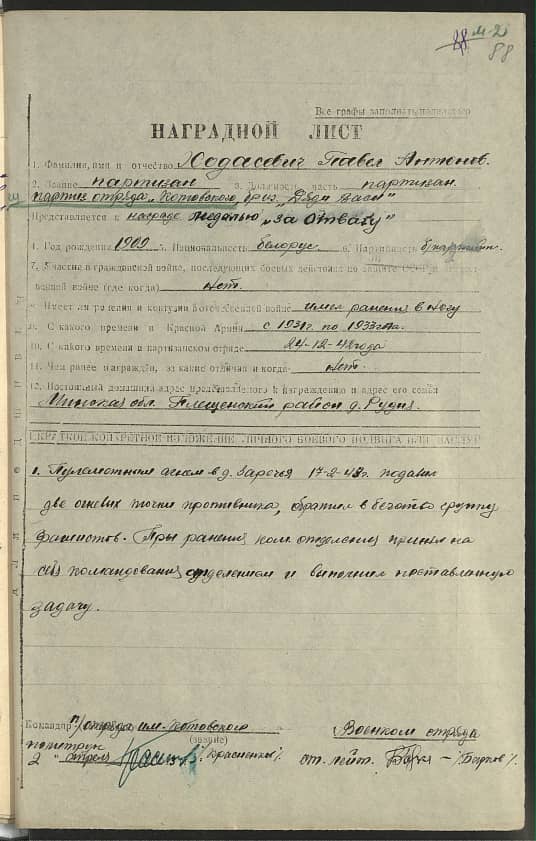 88 м-2
88
Все графы заполнять полностью
НАГРАДНОЙ ЛИСТ
1. Фамилия, имя и отчество Ходасевич Павел Антонов.
2. Звание партизан 3. Должность, часть партизан.
партиз отряда "Котовского, бриг. "Дяди Васи"
Представляется к награде медалью "За отвагу"
4. Год рождения 1909 5. Национальность белорус 6. Партийность б/партийн.
7. Участие в гражданской войне, последующих боевых действиях по защите СССР и отечест-
венной войне (где когда) нет.
8. Имеет ли ранения и контузии в отечественной войне имел ранения в ногу
9. С какого времени в Красной Армии с 1931г. по 1933 года.
10. С какого времени в партизанском отряде 24-12-42 года
11. Чем ранее награжден, за какие отличия и когда нет.
12. Постоянный домашний адрес представляемого к награждению и адрес его семьи
Минская обл. Плещенский район д. Рудня.
КРАТКОЕ КОНКРЕТНОЕ ИЗЛОЖЕНИЕ ЛИЧНОГО БОЕВОГО ПОДВИГА ИЛИ ЗАСЛУГ
1. Пулеметным огнем в д. Заречья 17-2-43г. подавил
две огневых точки противника, обратил в бегство группу
фашистов. Пры ранения ком. отделения принял на
себя командования отделением и выполнил поставленную
задачу.
Командир п/отряда им. Котовского
(звание)
Военком отряда
политрук
2 " апреля /Красненков/
ст. лейт. /Барков/.